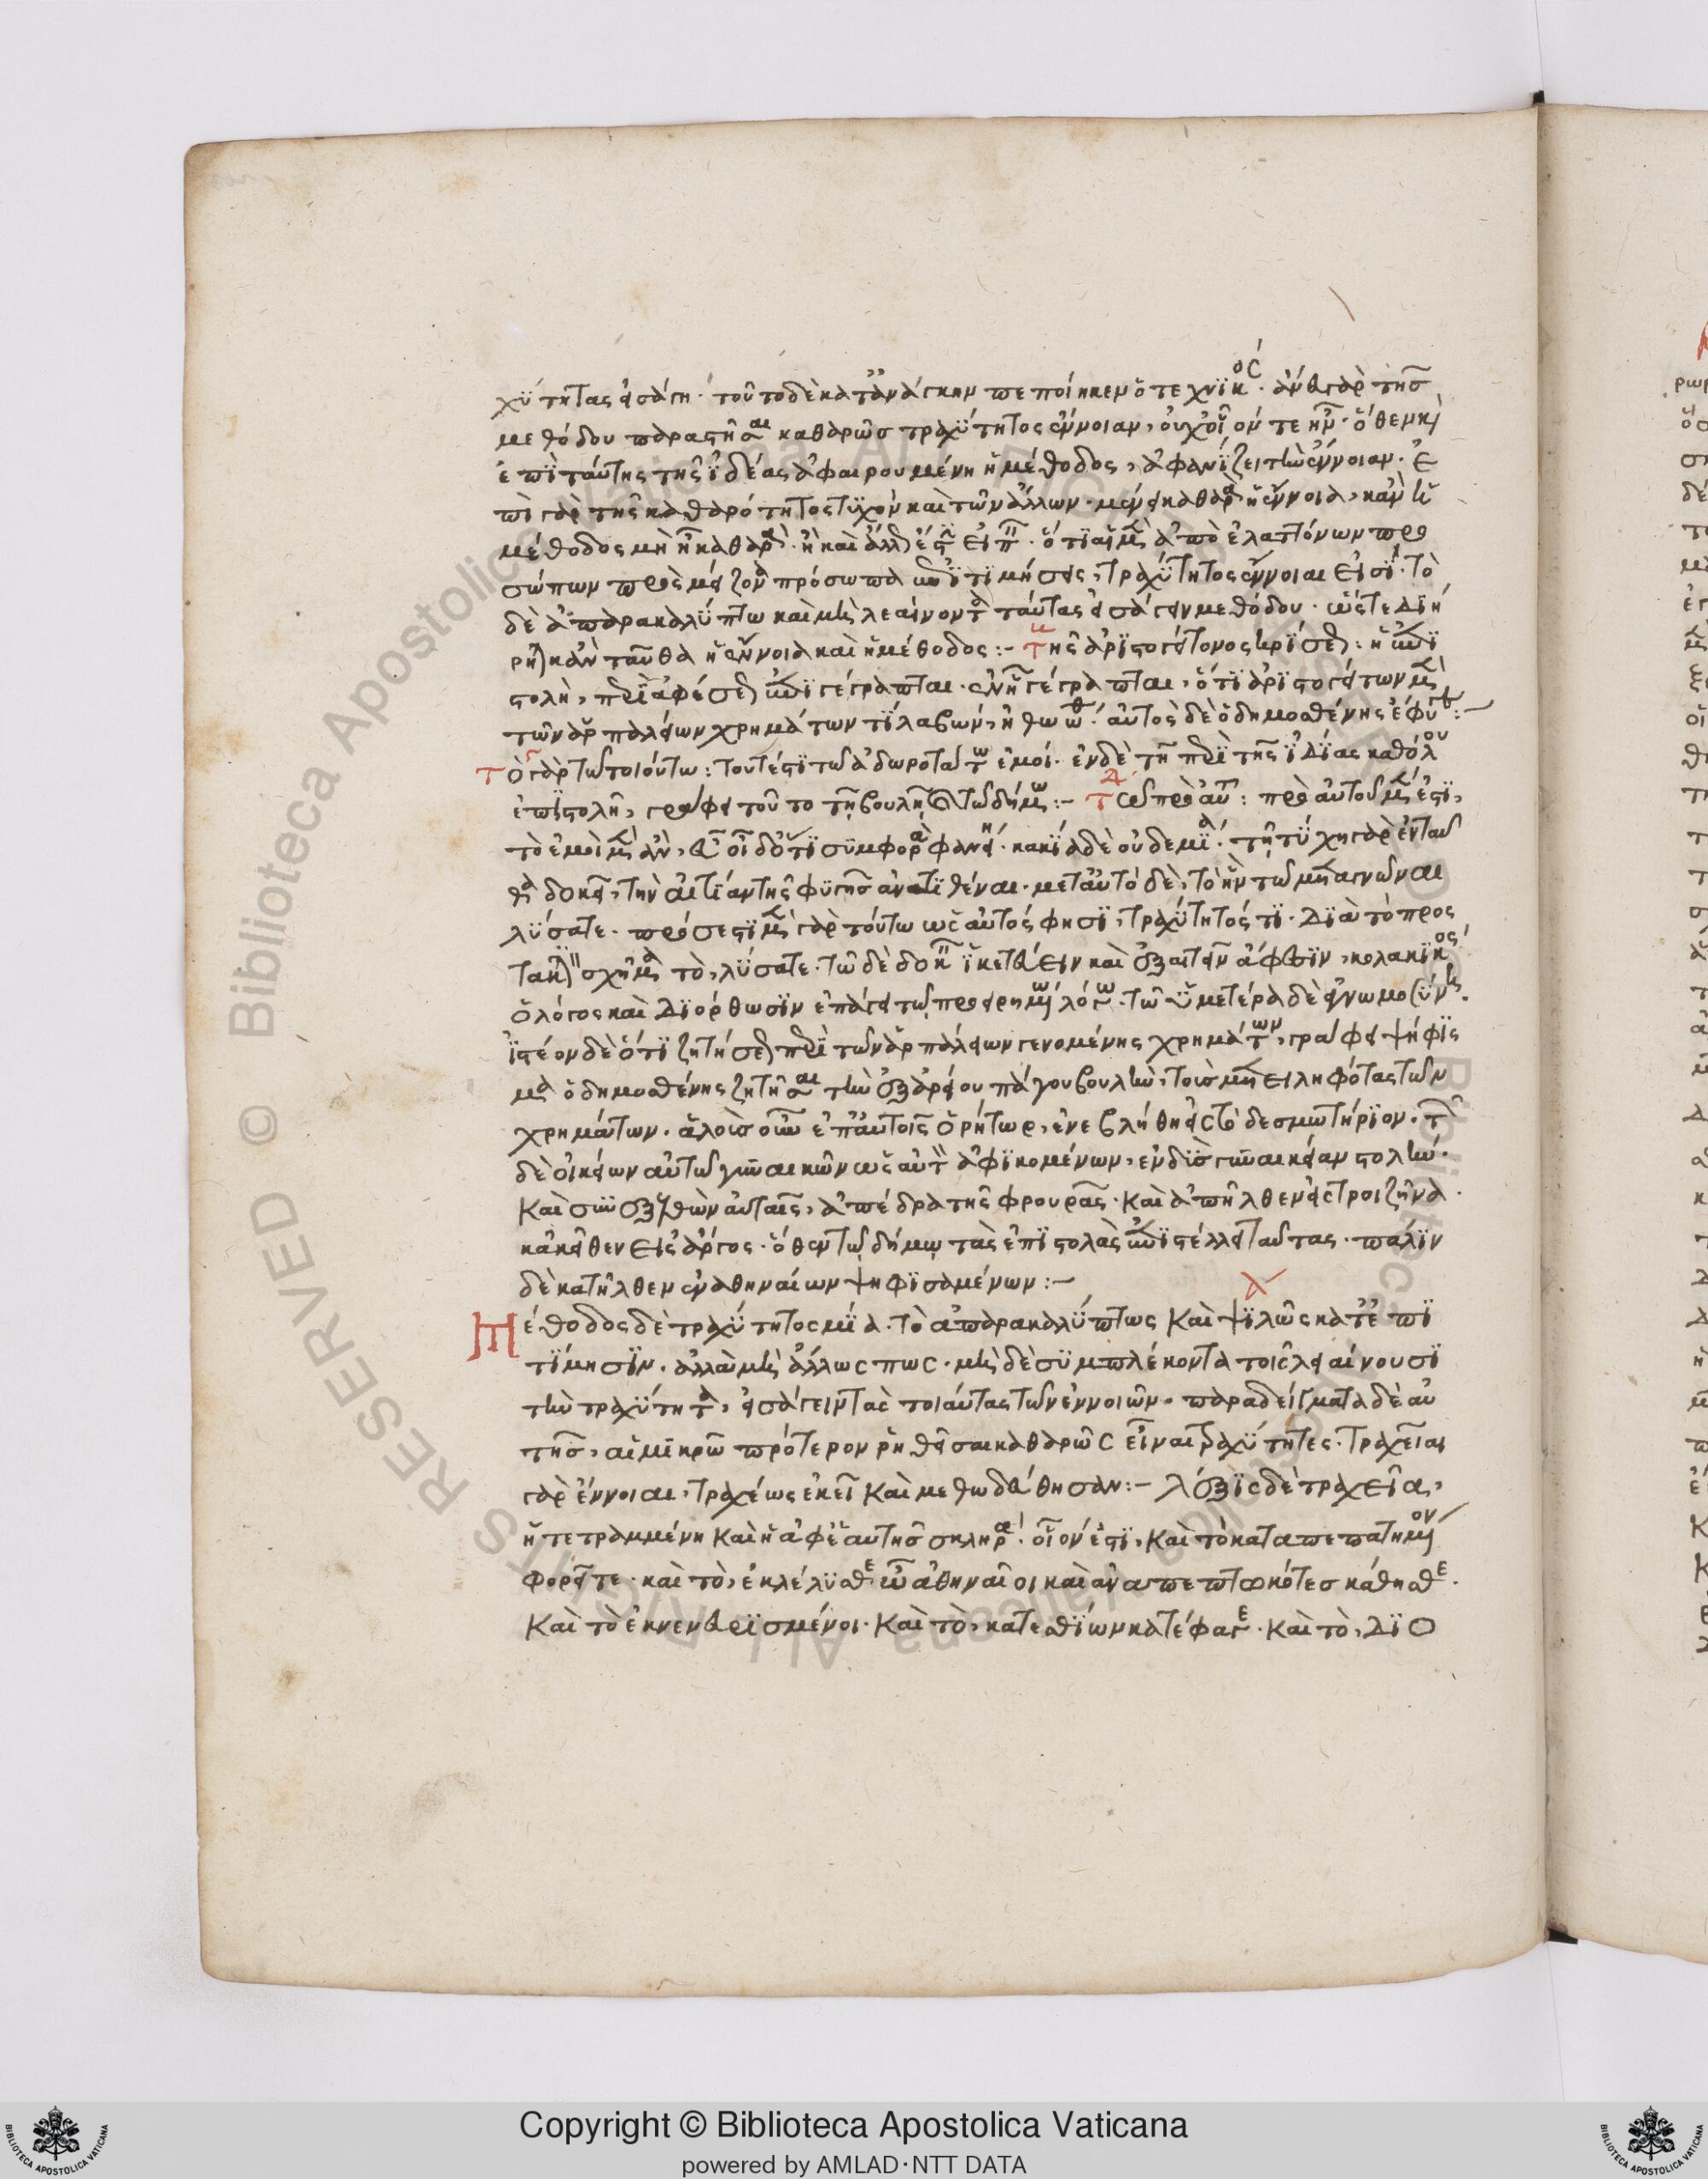 χύτητας εἰσάγει· τοῦτο δὲ κατ' ἀνάγκην πεποίηκεν ὁ τεχνικός· ἄνευ γὰρ τῆς
μεθόδου παραστῆσαι καθαρῶς τραχύτητος ἔννοιαν, οὐχ οἷόν τε ἦν· ὅθεν καὶ
ἐπὶ ταύτης τῆς ἰδέας ἀφαιρουμένη ἡ μέθοδος, ἀφανίζει τὴν ἔννοιαν· ἐ
πὶ γὰρ τῆς καθαρότητος τυχὸν καὶ τῶν ἄλλων· μένει καθαρὰ ἡ ἔννοια, κἂν ἡ
μέθοδος μὴ ᾖ καθαρά· ὅτι αἱ μὲν ἀπὸ ἐλαττόνων προ
σώπων πρὸς μείζονα πρόσωπα ἐπιτιμήσεις, τραχύτητος ἔννοιαι εἰσί· τὸ
δὲ ἀπαρακαλύπτω καὶ μὴ λεαίνοντα ταύτας εἰσάγειν μεθόδου· ὥστε διή
ρηται κἀνταῦθα ἡ ἔννοια καὶ ἡ μέθοδος :- Τῆς ἀριστογείτονος κρίσεως : ἡ ἐπι
στολὴ, περὶ ἀφέσεως ἐπιγέγραπται· ἐν ᾗ γέγραπται, ὅτι ἀριστογείτων μὲν
τῶν ἁρπαλείων χρημάτων τι λαβὼν, ἠθωώθη· αὐτὸς δὲ ὁ δημοσθένης ἔφυγε :-
Τὸ γὰρ τῶ τοιούτω : τουτέστι τῶ ἀδωροτάτω ἐμοί· ἐν δὲ τῇ περὶ τῆς ἰδίας καθόδου
ἐπιστολῆ, γράφει τοῦτο τῇ βουλῇ καὶ τῶ δήμω :- Τοῦ πρὸ αὐτοῦ : πρὸ αὐτοῦ μέν ἐστι,
τὸ ἐμοὶ μὲν ἂν, εὖ οἶδ' ὅτι συμφορὰ φανείη· κακία δὲ οὐδεμία· τῇ τύχῃ γὰρ ἐνταῦ
θα δοκεῖ, τὴν αἰτίαν τῆς φυγῆς ἀνατιθέναι· μετ' αὐτὸ δὲ, τὸ ἣν τῶ μὴ ἀγνῶναι
λύσατε· πρόσεστι μὲν γὰρ τούτω ὡς αὐτός φησι, τραχύτητός τι· διὰ τὸ προς
τακτικὸν σχῆμα τὸ, λύσατε· τῶ δὲ δοκεῖν ἱκετεύειν καὶ ἐξαιτεῖν ἄφεσιν, κολακικὸς
ὁ λόγος καὶ διόρθωσιν ἐπάγει τῶ προειρημένω λόγω· τῶ ὑμετέρα δὲ εὐγνωμοσύνη.
ἰστέον δὲ ὅτι ζητήσεως περὶ τῶν ἁρπαλείων γενομένης χρημάτων, γράφει ψήφισ
μα ὁ δημοσθένης ζητῆσαι τὴν ἐξ ἀρείου πάγου βουλὴν, τοὺς μὴ εἰληφότας τῶν
χρημάτων. ἁλοὺς οὖν ἐπ' αὐτοῖς ὁ ῥήτωρ, ἐνεβλήθη εἰς τὸ δεσμωτήριον· τῶν
δὲ οἰκείων αὐτῶ γυναικῶν ὡς αὐτὸν ἀφικομένων, ἐνδὺς γυναικείαν στολήν·
Καὶ συνεξελθὼν αὐταῖς, ἀπέδρα τῆς φρουρᾶς· Καὶ ἀπῆλθεν εἰς τροιζῆνα·
κἀκεῖθεν εἰς ἄργος· ὅθεν τῶ δήμῳ τὰς ἐπιστολὰς ἐπιστέλλει ταύτας· πάλιν
δὲ κατῆλθεν ἐν ἀθηναίων ψηφισαμένων :-
Μέθοδος δὲ τραχύτητος μία· τὸ ἀπαρακαλύπτως Καὶ ψιλῶς κατ' ἐπι
τίμησιν· ἀλλὰ μὴ ἄλλως πως· μὴ δὲ συμπλέκοντα τοῖς λεαίνουσι
τὴν τραχύτητα, εἰσάγειν τὰς τοιαύτας τῶν ἐννοιῶν· παραδείγματα δὲ αὐ
τῆς, αἱ μικρῶ πρότερον ῥηθεῖσαι καθαρῶς εἶναι τραχύτητες· τραχεῖαι
γὰρ ἔννοιαι, τραχέως ἐκεῖ Καὶ μεθωδεύθησαν :- λέξις δὲ τραχεῖα,
ἥ τε τραμμένη Καὶ ἡ ἀφ' ἑαυτῆς σκληρά· οἷόν ἐστι, Καὶ τὸ καταπεπατημένον
φορεῖτε· καὶ τὸ, ἐκλέλυσθε ὦ ἀθηναῖοι καὶ ἀναπεπτωκότες κάθησθε·
Καὶ τὸ ἐκνενευρισμένοι· Καὶ τὸ, κατεσθίων κατέφαγε· Καὶ τὸ, διο
© Biblioteca Apostolica Vaticana ALL RIGHTS RESERVED
Copyright © Biblioteca Apostolica Vaticana
powered by AMLAD·NTT DATA
BIBLIOTECA APOSTOLICA VATICANA
BIBLIOTECA APOSTOLICA VATICANA